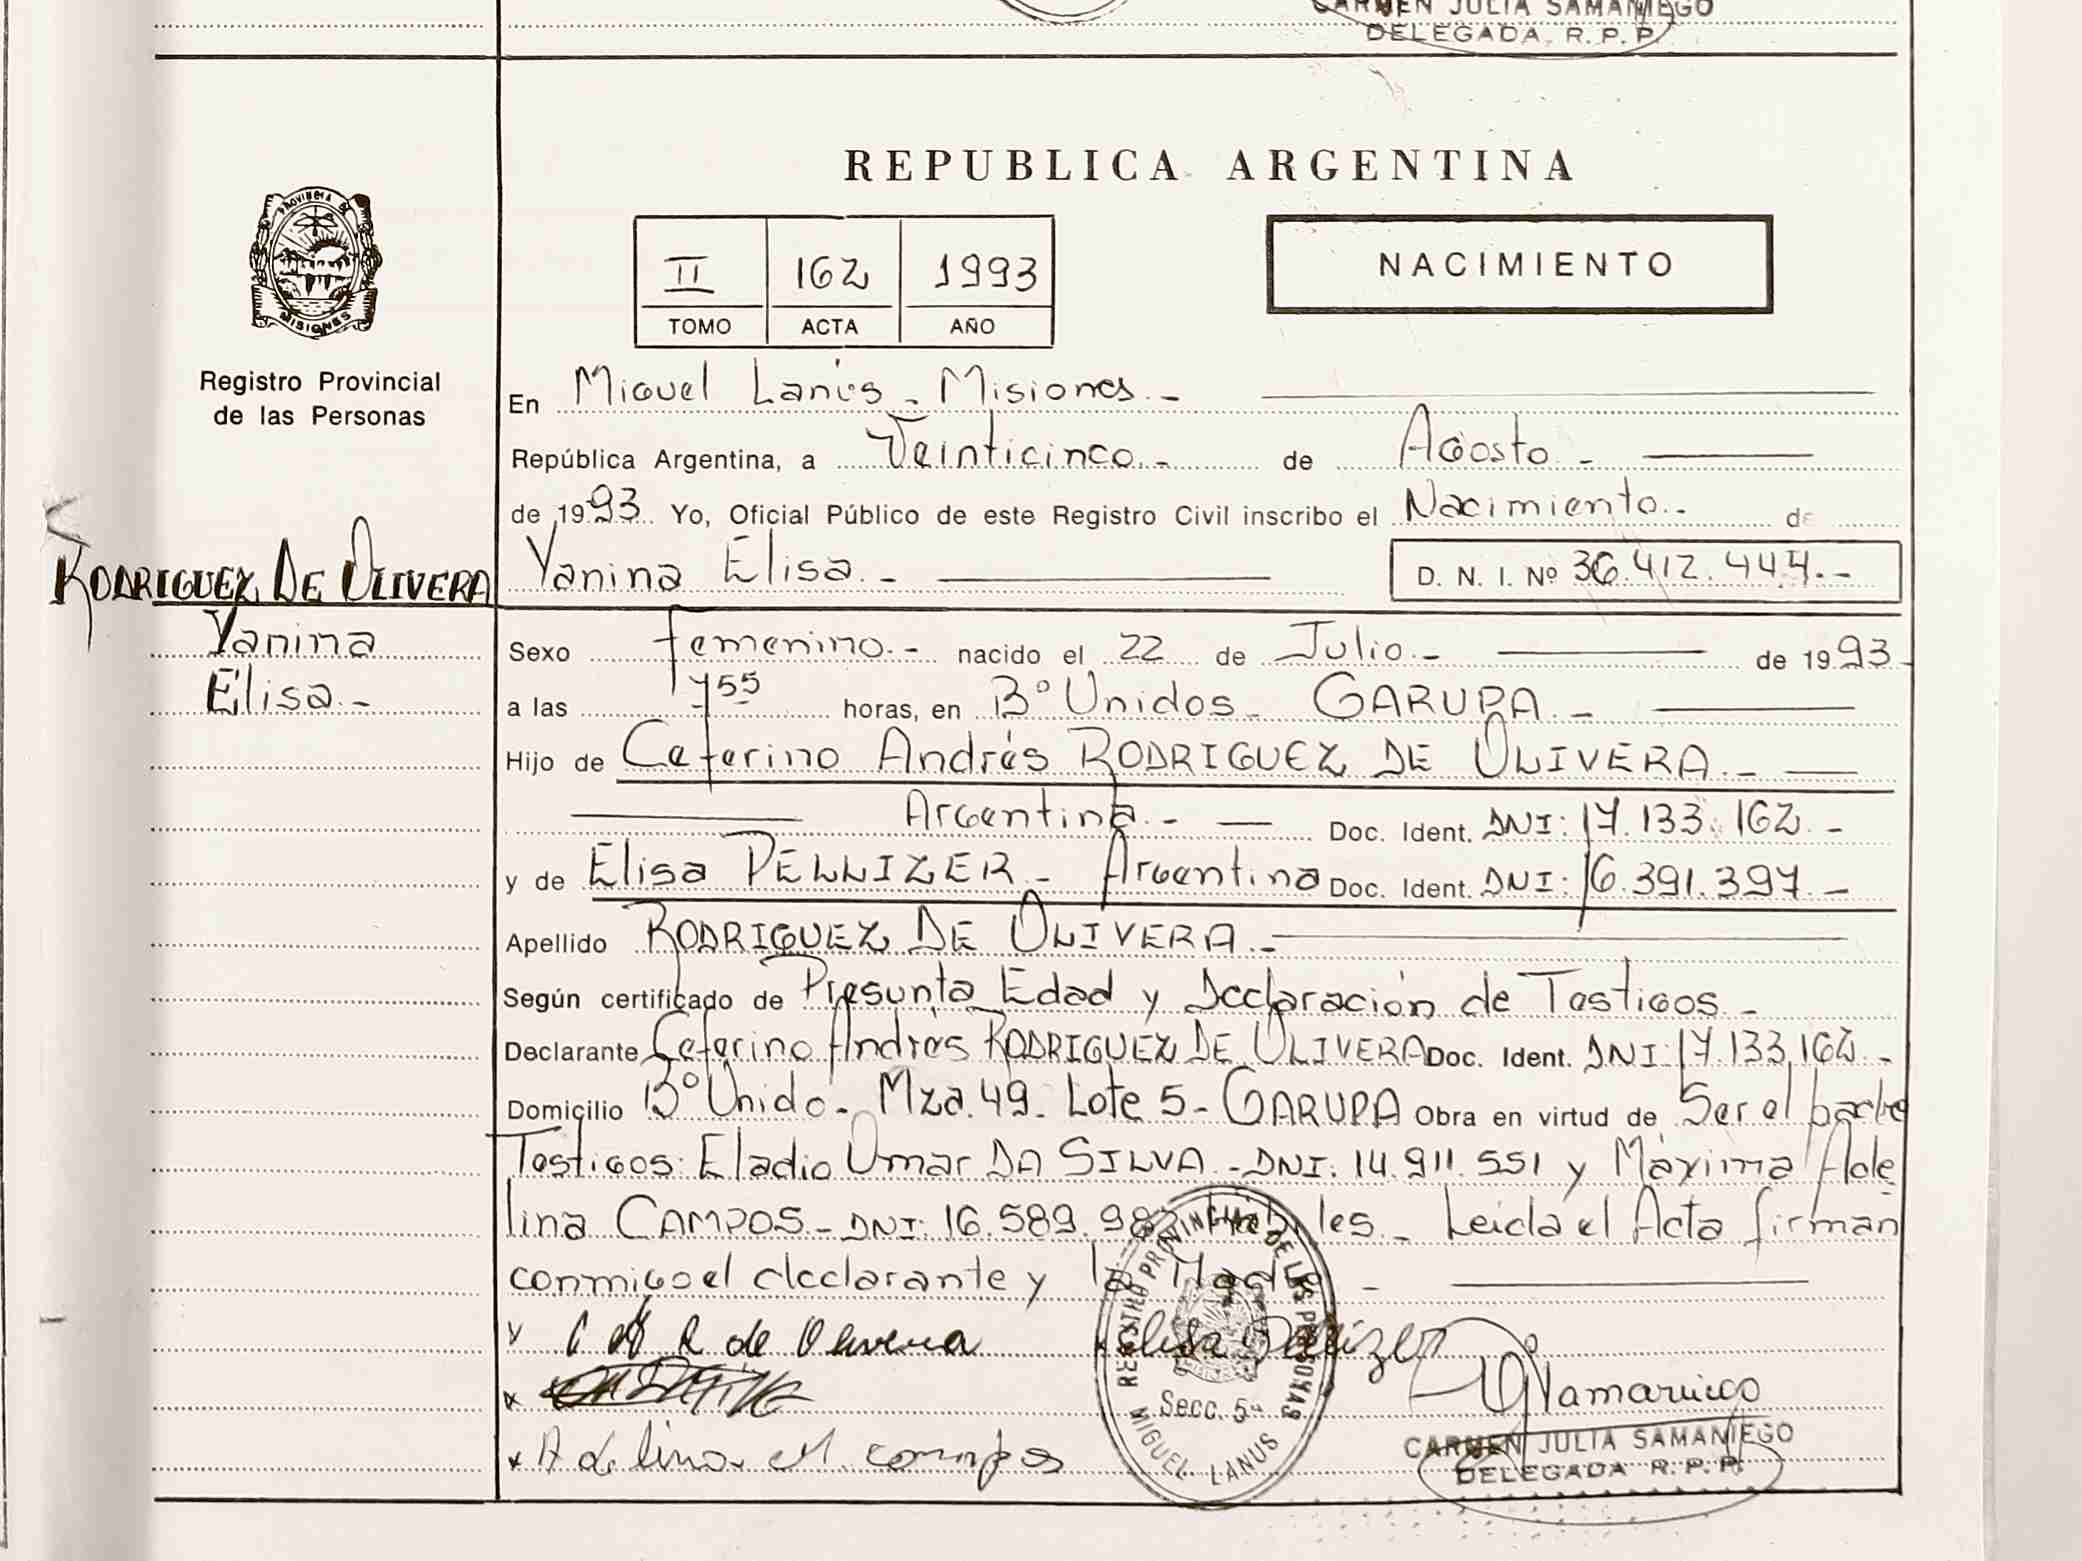 CARMEN JULIA SAMANIEGO
DELEGADA R.P.P.
REPUBLICA ARGENTINA
PROVINCIA DE
MISIONES
II 162 1993
TOMO ACTA AÑO
NACIMIENTO
Registro Provincial
de las Personas
En Miguel Lanús - Misiones -
República Argentina, a Veinticinco.- de Agosto -
de 1993. Yo, Oficial Público de este Registro Civil inscribo el Nacimiento.- de
Yanina Elisa.- D. N. I. Nº 36.412.444.-
RODRIGUEZ DE OLIVERA
Yanina
Elisa.-
Sexo femenino.- nacido el 22 de Julio.- de 1993
a las 7 55 horas, en Bº Unidos - GARUPA.-
Hijo de Ceferino Andrés RODRIGUEZ DE OLIVERA.-
Argentina.- Doc. Ident. DNI: 17.133.162.-
y de Elisa PELLIZER - Argentina Doc. Ident. DNI: 16.391.397.-
Apellido RODRIGUEZ DE OLIVERA.-
Según certificado de Presunta Edad y Declaración de Testigos -
Declarante Ceferino Andrés RODRIGUEZ DE OLIVERA Doc. Ident. DNI: 17.133.162.-
Domicilio Bº Unido - Mza. 49 - Lote 5 - GARUPA Obra en virtud de Ser el padre
Testigos: Eladio Omar DA SILVA - DNI: 14.911.551 y Máxima Ade
lina CAMPOS - DNI: 16.589.982 Hábiles - Leida el Acta firman
conmigo el declarante y la Madre -
C A R de Olivera
Elisa Pellizer
Adelina M. campos
REGISTRO PROVINCIAL DE LAS PERSONAS
Secc. 5ª
MIGUEL LANUS
CARMEN JULIA SAMANIEGO
DELEGADA R.P.P.